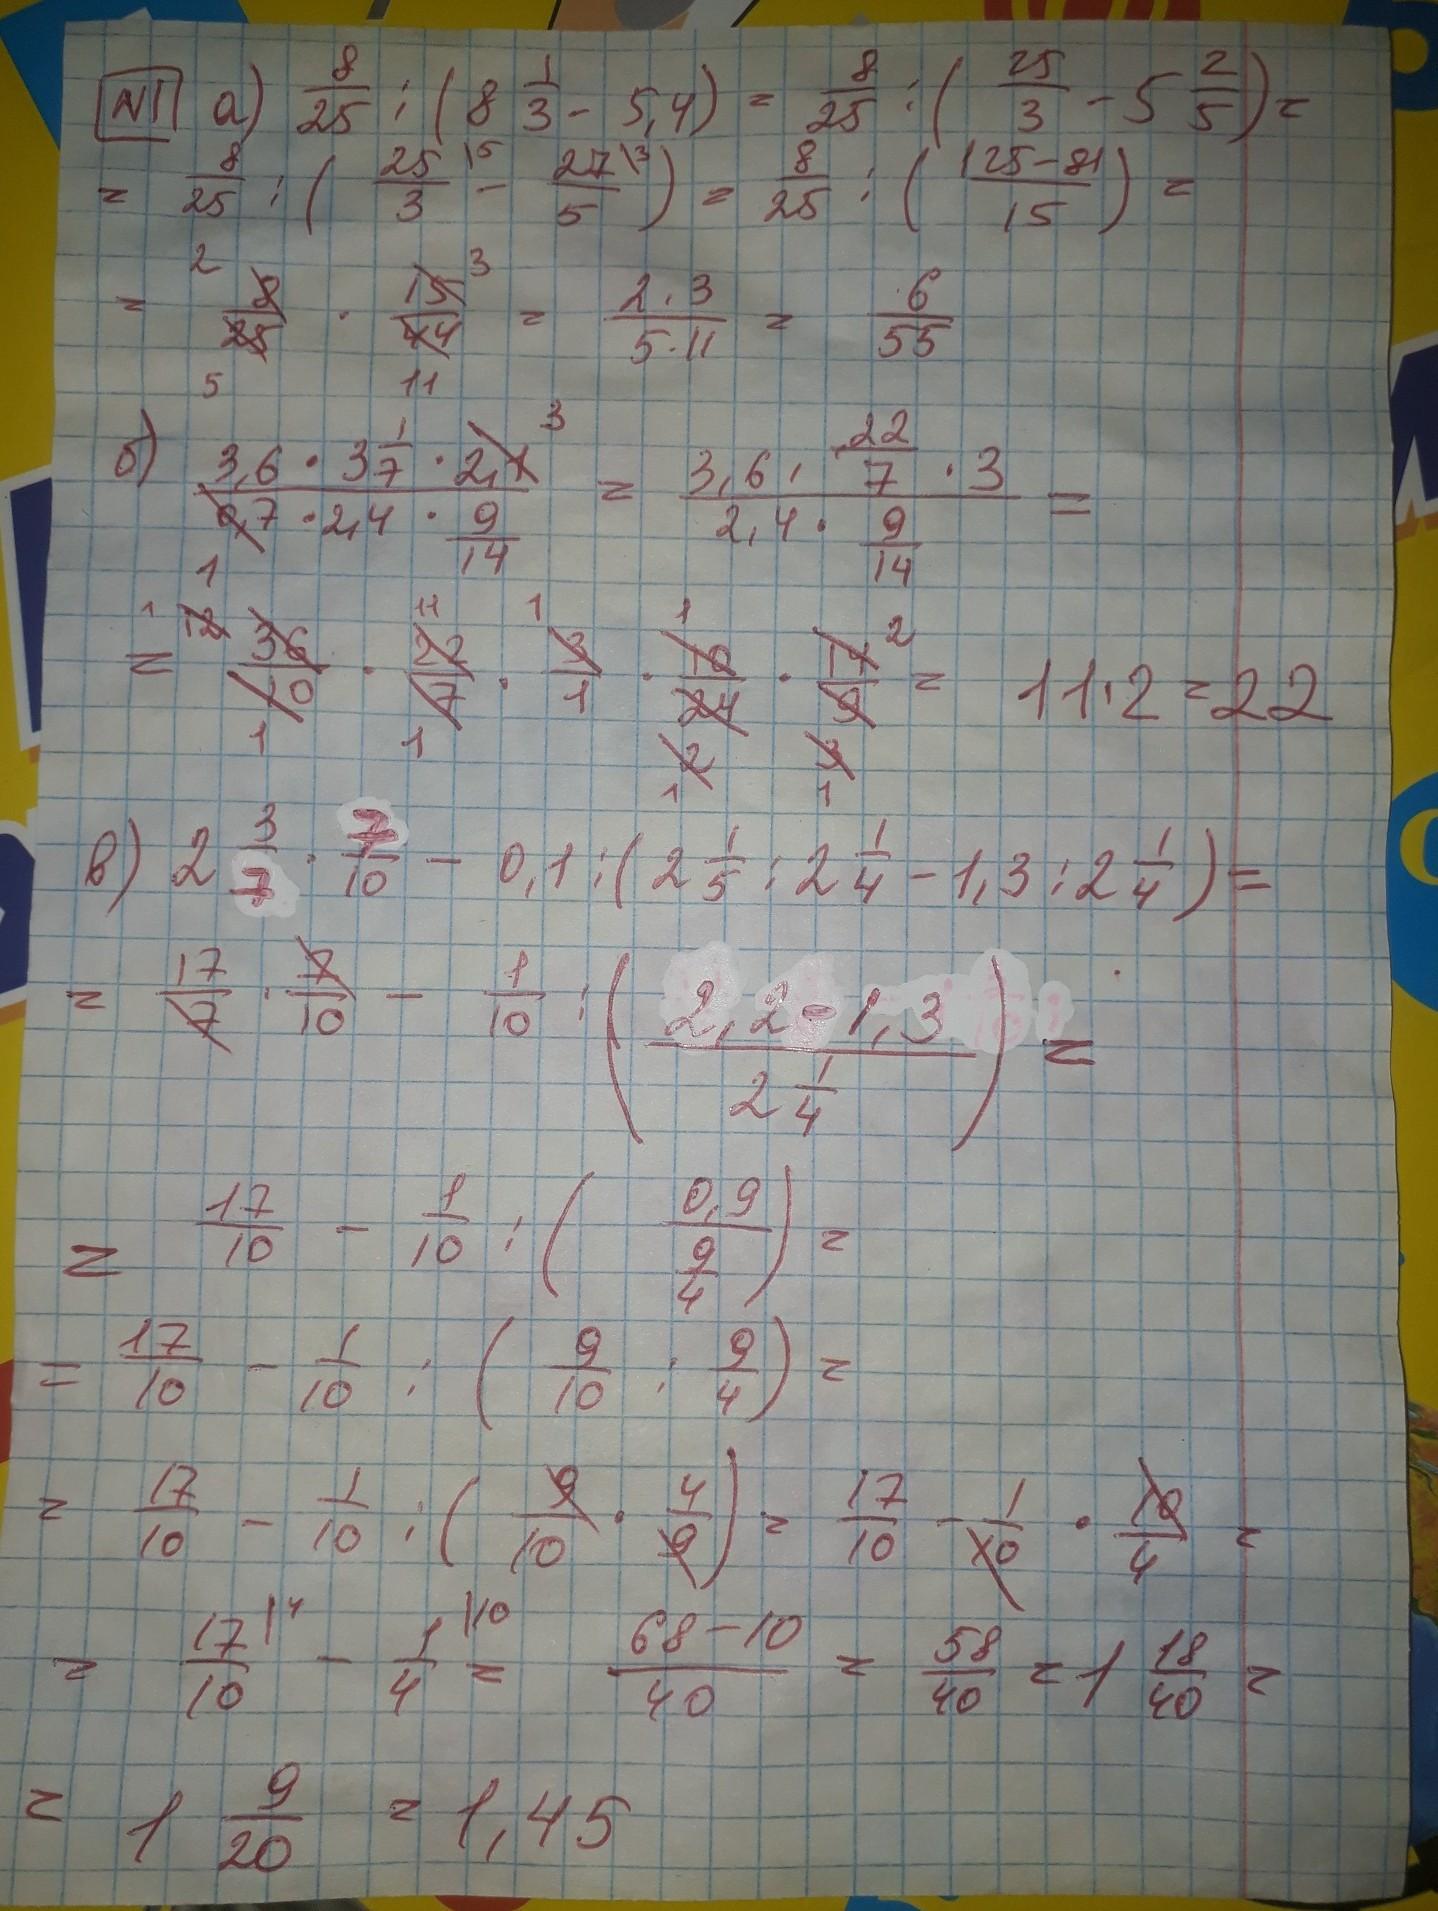 N1 а) 8/25 : (8 1/3 - 5,4) = 8/25 : (25/3 - 5 2/5) =
= 8/25 : (25/3 \5 - 27/5 \3) = 8/25 : ((125-81)/15) =
= 8/25 · 15/44 = (2·3)/(5·11) = 6/55
2 3
5 11
б) (3,6 · 3 1/7 · 2,1)/(0,7 · 2,4 · 9/14) = (3,6 · 22/7 · 3)/(2,4 · 9/14) =
3
1
= 36/10 · 22/7 · 3/1 · 10/24 · 14/9 = 11·2 = 22
1 12 11 1 1 2
1 1 2 3
1 1
в) 2 3/7 · 7/10 - 0,1 : (2 1/5 : 2 1/4 - 1,3 : 2 1/4) =
= 17/7 · 7/10 - 1/10 : ((2,2-1,3)/(2 1/4)) =
= 17/10 - 1/10 : (0,9/(9/4)) =
= 17/10 - 1/10 : (9/10 : 9/4) =
= 17/10 - 1/10 : (9/10 · 4/9) = 17/10 - 1/10 · 10/4 =
= 17/10 |4 - 1/4 |10 = (68-10)/40 = 58/40 = 1 18/40 =
= 1 9/20 = 1,45